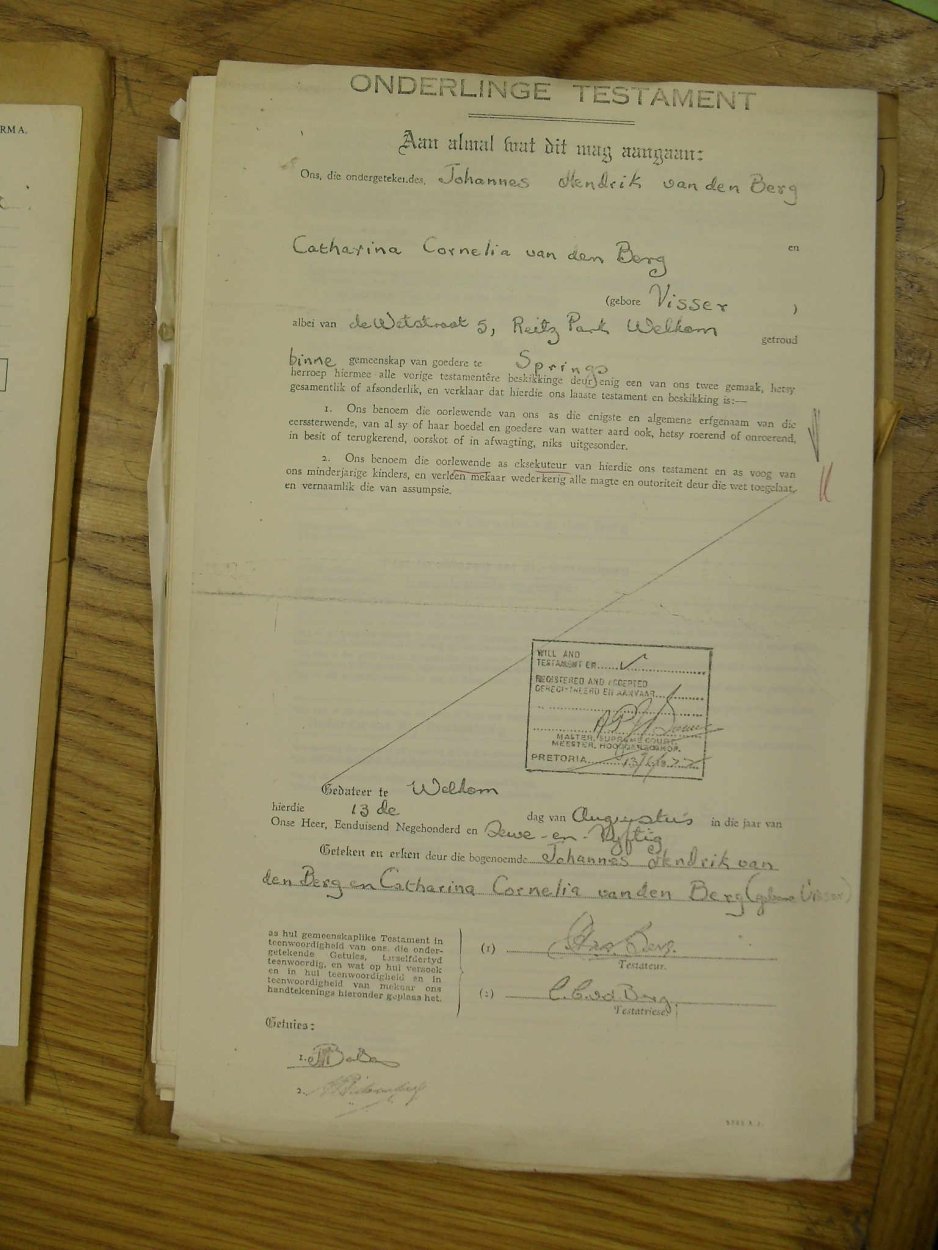 RM A.
ONDERLINGE TESTAMENT
Aan almal wat dit mag aangaan:
Ons, die ondergetekendes, Johannes Hendrik van den Berg
Catharina Cornelia van den Berg en
(gebore Visser )
albei van de Wetstraat 5, Reitz Park Welkom getroud
binne gemeenskap van goedere te Springs
herroep hiermee alle vorige testamentêre beskikkinge deur enig een van ons twee gemaak, hetsy
gesamentlik of afsonderlik, en verklaar dat hierdie ons laaste testament en beskikking is:—
1. Ons benoem die oorlewende van ons as die enigste en algemene erfgenaam van die
eerssterwende, van al sy of haar boedel en goedere van watter aard ook, hetsy roerend of onroerend,
in besit of terugkerend, oorskot of in afwagting, niks uitgesonder.
2. Ons benoem die oorlewende as eksekuteur van hierdie ons testament en as voog van
ons minderjarige kinders, en verleen mekaar wederkerig alle magte en outoriteit deur die wet toegelaat,
en vernaamlik die van assumpsie.
WILL AND
TESTAMENT EN
REGISTERED AND ACCEPTED
GEREGISTREERD EN AANVAAR
MASTER, SUPREME COURT
MEESTER, HOOGGEREGSHOF.
PRETORIA
Gedateer te Welkom
hierdie 13 de dag van Augustus in die jaar van
Onse Heer, Eenduisend Negehonderd en Sewe-en-Vyftig
Geteken en erken deur die bogenoemde Johannes Hendrik van
den Berg en Catharina Cornelia van den Berg (gebore Visser)
as hul gemeenskaplike Testament in
teenwoordigheid van ons, die onder-
getekende Getuies, terselfdertyd
teenwoordig, en wat op hul versoek
en in hul teenwoordigheid en in
teenwoordigheid van mekaar ons
handtekenings hieronder geplaas het.
(1)
Testateur.
(2) C.C.vd.Berg
Testatriese.
Getuies:
1.
2.